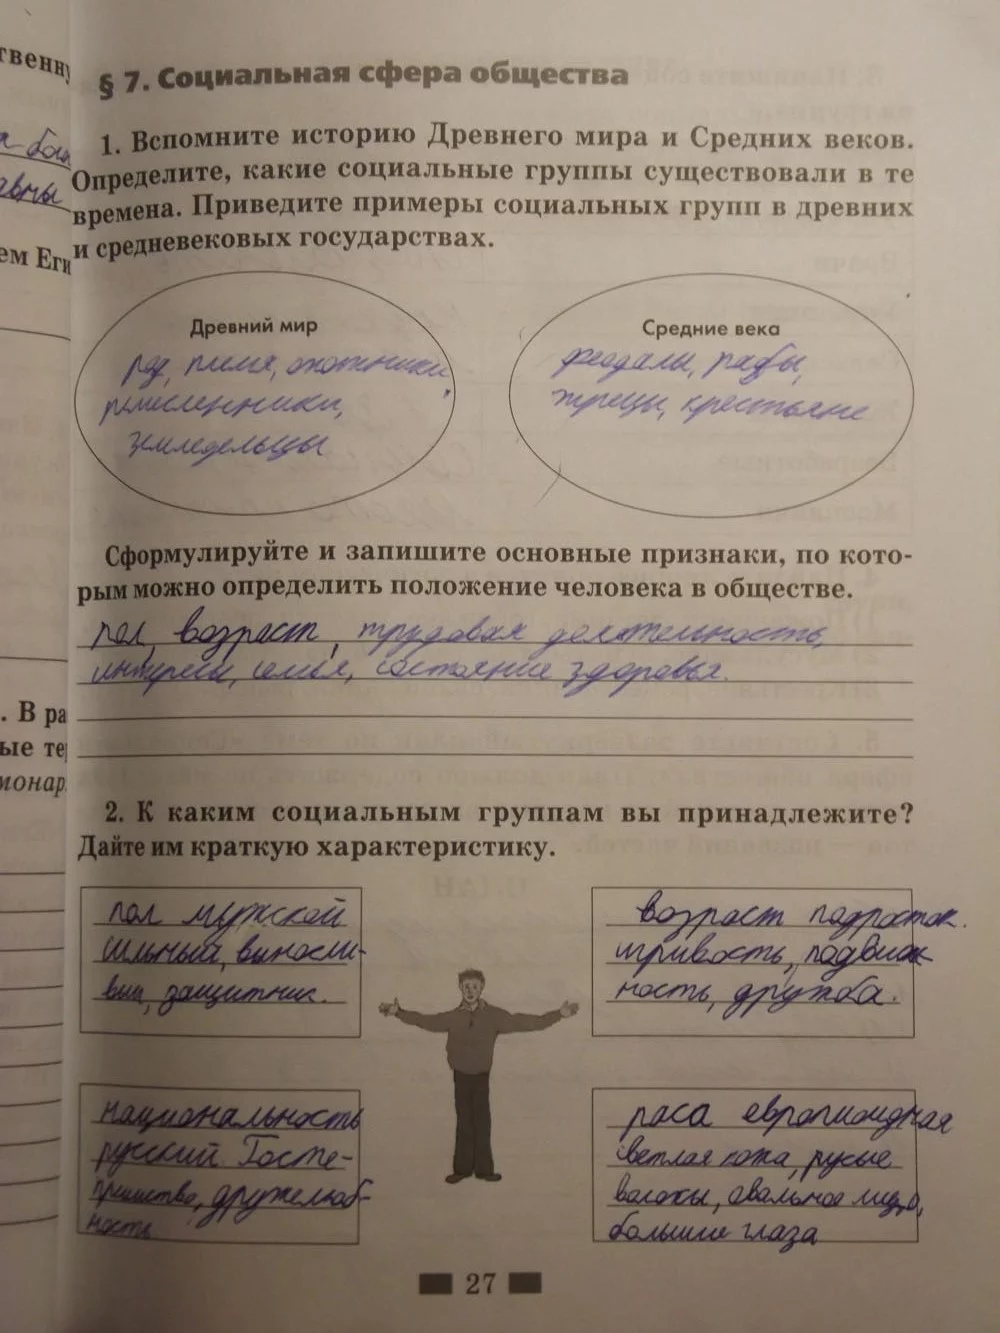 твенну
§ 7. Социальная сфера общества
1. Вспомните историю Древнего мира и Средних веков.
Определите, какие социальные группы существовали в те
времена. Приведите примеры социальных групп в древних
и средневековых государствах.
авты
ем Еги
Древний мир
род, племя, охотники,
ремесленники,
земледельцы
Средние века
феодалы, рабы,
жрецы, крестьяне
Сформулируйте и запишите основные признаки, по кото-
рым можно определить положение человека в обществе.
пол, возраст, трудовая деятельность,
интересы, семья, состояние здоровья.
. В ра
ые те
ионар
2. К каким социальным группам вы принадлежите?
Дайте им краткую характеристику.
пол мужской
сильный, выносли-
вый, защитник.
возраст подросток.
игривость, подвиж
ность, дружба.
национальность
русский. Госте-
приимство, дружелюб-
ность
раса европиоидная
светлая кожа, русые
волосы, овальное лицо,
большие глаза
27